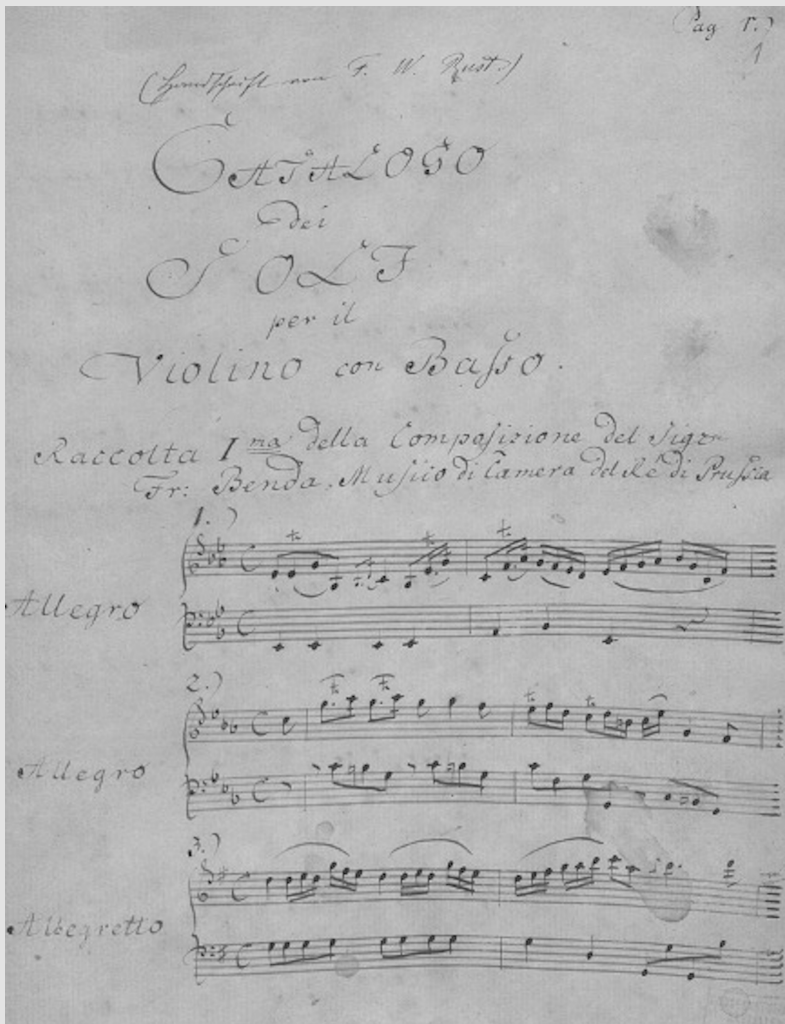 Pag 1.)
1
(Handschrift von F. W. Rust.)
CATALOGO
dei
SOLI
per il
Violino con Basso.
Raccolta Ima della Composizione del Sigr
Fr: Benda, Musico di Camera del Ré di Prussia
1.)
Allegro
2.)
Allegro
3.)
Allegretto